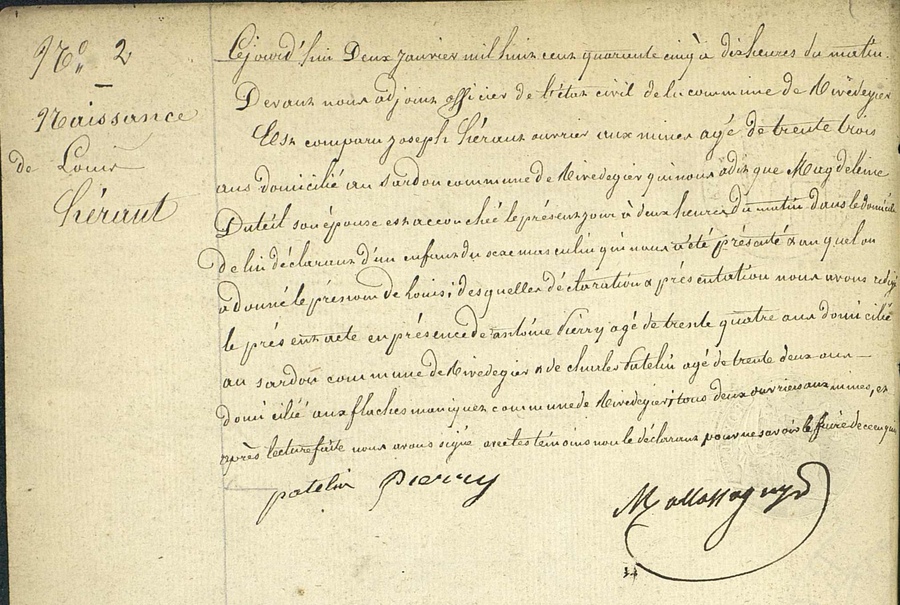 N° 2
Naissance
de Louis
héraut
Cejourd'hui Deux janvier mil huit cent quarante cinq à dix heures du matin.
Devant nous adjoint officier de l'état civil de la commune de Rivedegier
Est comparu joseph héraut ouvrier aux mines agé de trente trois
ans domicilié au sardon commune de Rivedegier qui nous a dit que Magdeleine
Duteil son épouse est accouchée le présent jour à deux heures du matin dans le domicile
de lui déclarant d'un enfant du sexe masculin qui nous a été présenté & auquel on
a donné le prénom de Louis; desquelles déclaration & présentation nous avons rédigé
le présent acte en présence de antoine Pierry agé de trente quatre ans domicilié
au sardon commune de Rivedegier & de charles Patelin agé de trente deux ans
domicilié aux flaches maniquet commune de Rivedegier; tous deux ouvriers aux mines, et
après lecture faite nous avons signé avec les témoins non le déclarant pour ne savoir le faire de ce enquis
patelin Pierry